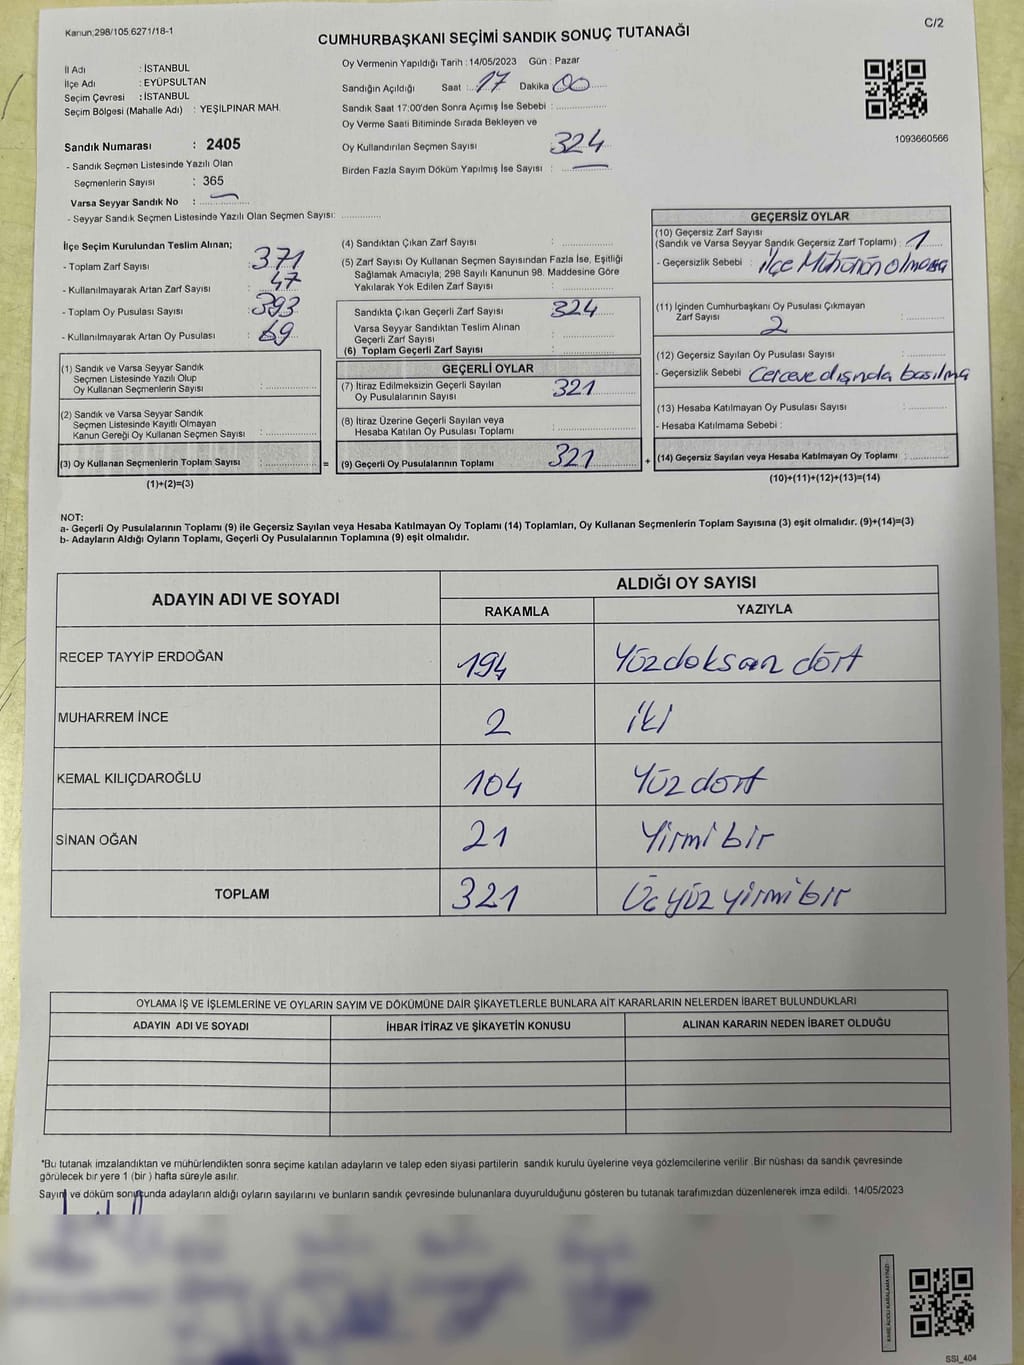 Kanun:298/105,6271/18-1
C/2
CUMHURBAŞKANI SEÇİMİ SANDIK SONUÇ TUTANAĞI
İl Adı : İSTANBUL
İlçe Adı : EYÜPSULTAN
Seçim Çevresi : İSTANBUL
Seçim Bölgesi (Mahalle Adı) : YEŞİLPINAR MAH.
Sandık Numarası : 2405
- Sandık Seçmen Listesinde Yazılı Olan
Seçmenlerin Sayısı : 365
Varsa Seyyar Sandık No :
- Seyyar Sandık Seçmen Listesinde Yazılı Olan Seçmen Sayısı:
Oy Vermenin Yapıldığı Tarih : 14/05/2023 Gün : Pazar
Sandığın Açıldığı Saat : 17 Dakika 00
Sandık Saat 17:00'den Sonra Açımış İse Sebebi :
Oy Verme Saati Bitiminde Sırada Bekleyen ve
Oy Kullandırılan Seçmen Sayısı 324
Birden Fazla Sayım Döküm Yapılmış İse Sayısı :
1093660566
İlçe Seçim Kurulundan Teslim Alınan;
- Toplam Zarf Sayısı : 371
- Kullanılmayarak Artan Zarf Sayısı : 47
- Toplam Oy Pusulası Sayısı : 393
- Kullanılmayarak Artan Oy Pusulası : 69
(1) Sandık ve Varsa Seyyar Sandık
Seçmen Listesinde Yazılı Olup
Oy Kullanan Seçmenlerin Sayısı :
(2) Sandık ve Varsa Seyyar Sandık
Seçmen Listesinde Kayıtlı Olmayan
Kanun Gereği Oy Kullanan Seçmen Sayısı :
(3) Oy Kullanan Seçmenlerin Toplam Sayısı : =
(1)+(2)=(3)
(4) Sandıktan Çıkan Zarf Sayısı :
(5) Zarf Sayısı Oy Kullanan Seçmen Sayısından Fazla İse, Eşitliği
Sağlamak Amacıyla; 298 Sayılı Kanunun 98. Maddesine Göre
Yakılarak Yok Edilen Zarf Sayısı :
Sandıkta Çıkan Geçerli Zarf Sayısı 324
Varsa Seyyar Sandıktan Teslim Alınan
Geçerli Zarf Sayısı :
(6) Toplam Geçerli Zarf Sayısı :
GEÇERLİ OYLAR
(7) İtiraz Edilmeksizin Geçerli Sayılan
Oy Pusulalarının Sayısı 321
(8) İtiraz Üzerine Geçerli Sayılan veya
Hesaba Katılan Oy Pusulası Toplamı :
(9) Geçerli Oy Pusulalarının Toplamı 321 +
GEÇERSİZ OYLAR
(10) Geçersiz Zarf Sayısı
(Sandık ve Varsa Seyyar Sandık Geçersiz Zarf Toplamı) : 1
- Geçersizlik Sebebi : İlçe Mührünün olmaması
(11) İçinden Cumhurbaşkanı Oy Pusulası Çıkmayan
Zarf Sayısı 2 :
(12) Geçersiz Sayılan Oy Pusulası Sayısı :
- Geçersizlik Sebebi Çerceve dışında basılma
(13) Hesaba Katılmayan Oy Pusulası Sayısı :
- Hesaba Katılmama Sebebi :
(14) Geçersiz Sayılan veya Hesaba Katılmayan Oy Toplamı :
(10)+(11)+(12)+(13)=(14)
NOT:
a- Geçerli Oy Pusulalarının Toplamı (9) ile Geçersiz Sayılan veya Hesaba Katılmayan Oy Toplamı (14) Toplamları, Oy Kullanan Seçmenlerin Toplam Sayısına (3) eşit olmalıdır. (9)+(14)=(3)
b- Adayların Aldığı Oyların Toplamı, Geçerli Oy Pusulalarının Toplamına (9) eşit olmalıdır.
ADAYIN ADI VE SOYADI
ALDIĞI OY SAYISI
RAKAMLA YAZIYLA
RECEP TAYYİP ERDOĞAN 194 Yüzdoksan dört
MUHARREM İNCE 2 iki
KEMAL KILIÇDAROĞLU 104 Yüz dört
SİNAN OĞAN 21 Yirmi bir
TOPLAM 321 Üç yüz yirmi bir
OYLAMA İŞ VE İŞLEMLERİNE VE OYLARIN SAYIM VE DÖKÜMÜNE DAİR ŞİKAYETLERLE BUNLARA AİT KARARLARIN NELERDEN İBARET BULUNDUKLARI
ADAYIN ADI VE SOYADI İHBAR İTİRAZ VE ŞİKAYETİN KONUSU ALINAN KARARIN NEDEN İBARET OLDUĞU
*Bu tutanak imzalandıktan ve mühürlendikten sonra seçime katılan adayların ve talep eden siyasi partilerin sandık kurulu üyelerine veya gözlemcilerine verilir .Bir nüshası da sandık çevresinde
görülecek bir yere 1 (bir ) hafta süreyle asılır.
Sayım ve döküm sonucunda adayların aldığı oyların sayılarını ve bunların sandık çevresinde bulunanlara duyurulduğunu gösteren bu tutanak tarafımızdan düzenlenerek imza edildi. 14/05/2023
SSI_404